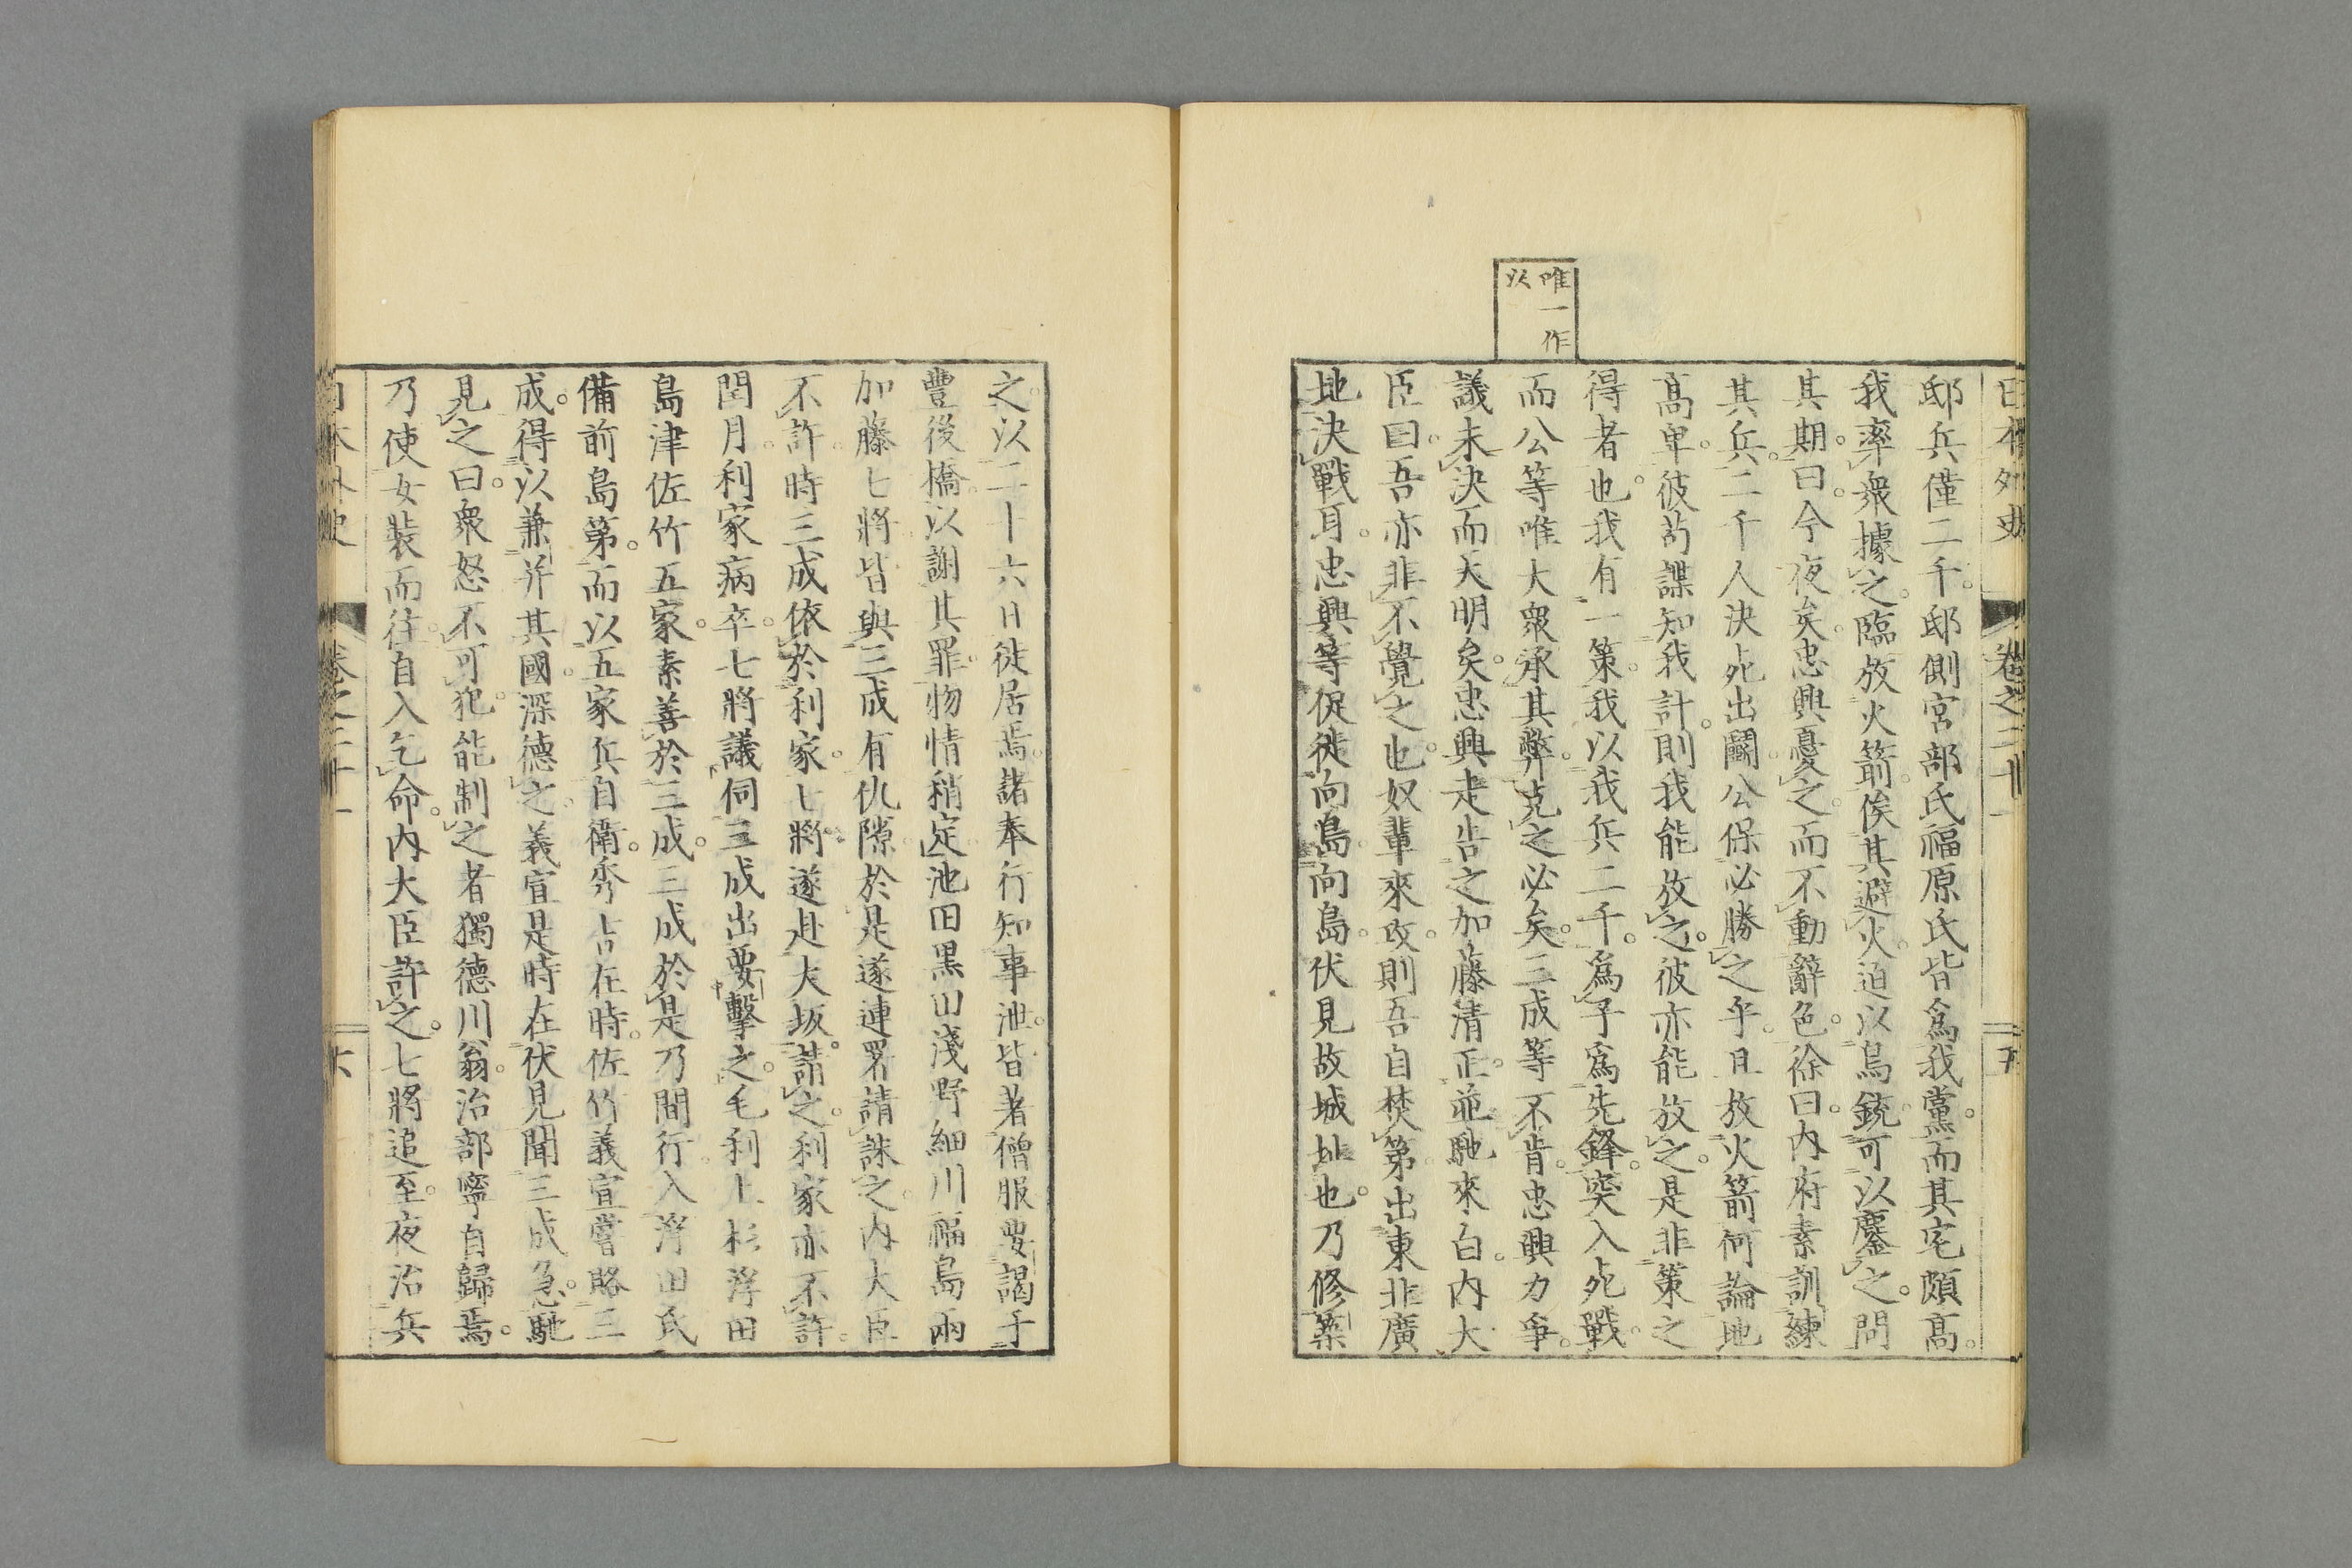 日本外史 卷之二十一 五
唯一作
以
邸兵僅二千。邸側宮部氏福原氏皆爲我黨。而其宅頗高。
我率衆據之。臨放火箭。俟其避火。迫以鳥銃。可以鏖之。問
其期。曰。今夜矣。忠興憂之。而不動辭色。徐曰。内府素訓練
其兵。二千人決死出鬭。公保必勝之乎。且放火箭。何論地
高卑。彼苟諜知我計。則我能放之。彼亦能放之。是非策之
得者也。我有一策。我以我兵二千。爲子爲先鋒。突入死戰。
而公等唯大衆承其弊。克之必矣。三成等不肯。忠興力爭。
議未決而天明矣。忠興走告之加藤清正。並馳來白。内大
臣曰。吾亦非不覺之也。奴輩來攻。則吾自焚第。出東北廣
地決戰耳。忠興等促徙向島。向島。伏見故城址也。乃修築
之。以二十六日徙居焉。諸奉行知事泄。皆著僧服。要謁于
豐後橋。以謝其罪。物情稍定。池田黒田淺野細川福島兩
加藤七將。皆與三成有仇隙。於是遂連署請誅之。内大臣
不許。時三成依於利家。七將遂赴大坂。請之。利家亦不許。
閏月。利家病卒。七將議伺三成出要擊之。毛利上杉浮田
島津佐竹五家。素善於三成。三成於是乃間行入浮田氏
備前島第。而以五家兵自衛。秀吉在時。佐竹義宣嘗賂三
成。得以兼并其國。深德之。義宣是時在伏見。聞三成急。馳
見之曰。衆怒不可犯。能制之者。獨德川翁。治部寧自歸焉。
乃使女裝而往。自入乞命。内大臣許之。七將追至。夜治兵
日本外史 卷之二十一 六